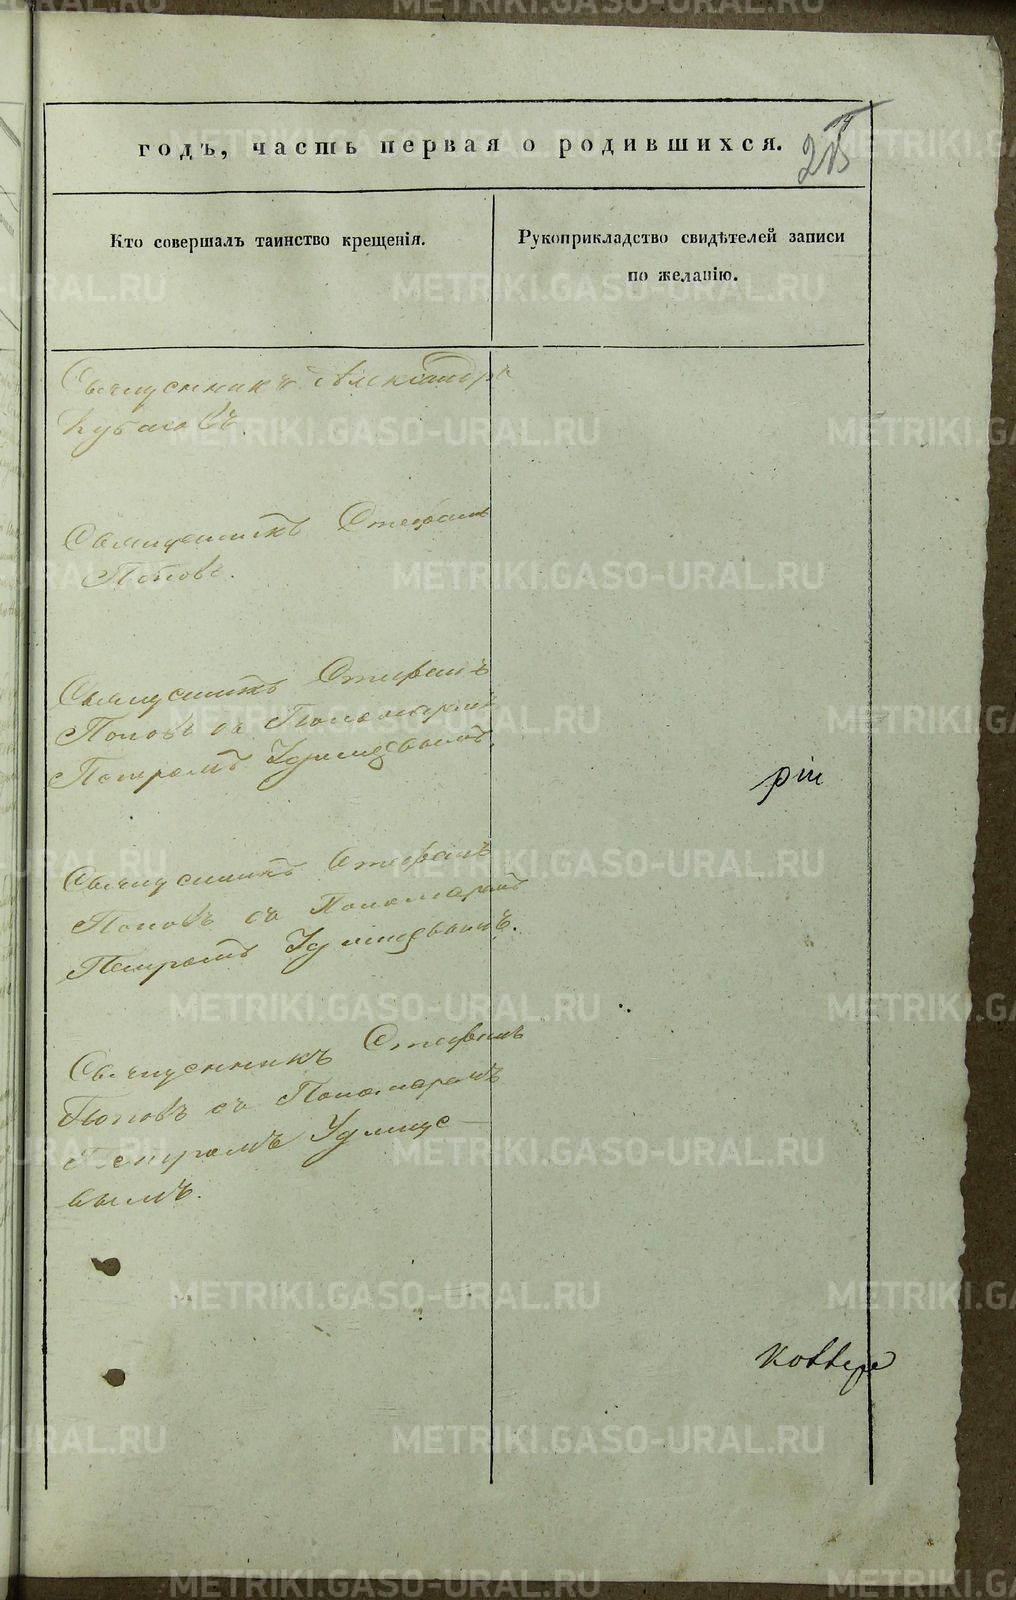 годъ, часть первая о родившихся.
Кто совершалъ таинство крещенія.
Рукоприкладство свидѣтелей записи
по желанію.
Священникъ Александръ
Священникъ Стефанъ
Поповъ.
Священникъ Стефанъ
Поповъ съ Пономаремъ
Петромъ Удинцевымъ.
Священникъ Стефанъ
Поповъ съ Пономаремъ
Петромъ Удинцевымъ.
Священникъ Стефанъ
Поповъ съ Пономаремъ
Петромъ Удинце-
вымъ.
рiи
METRIKI.GASO-URAL.RU